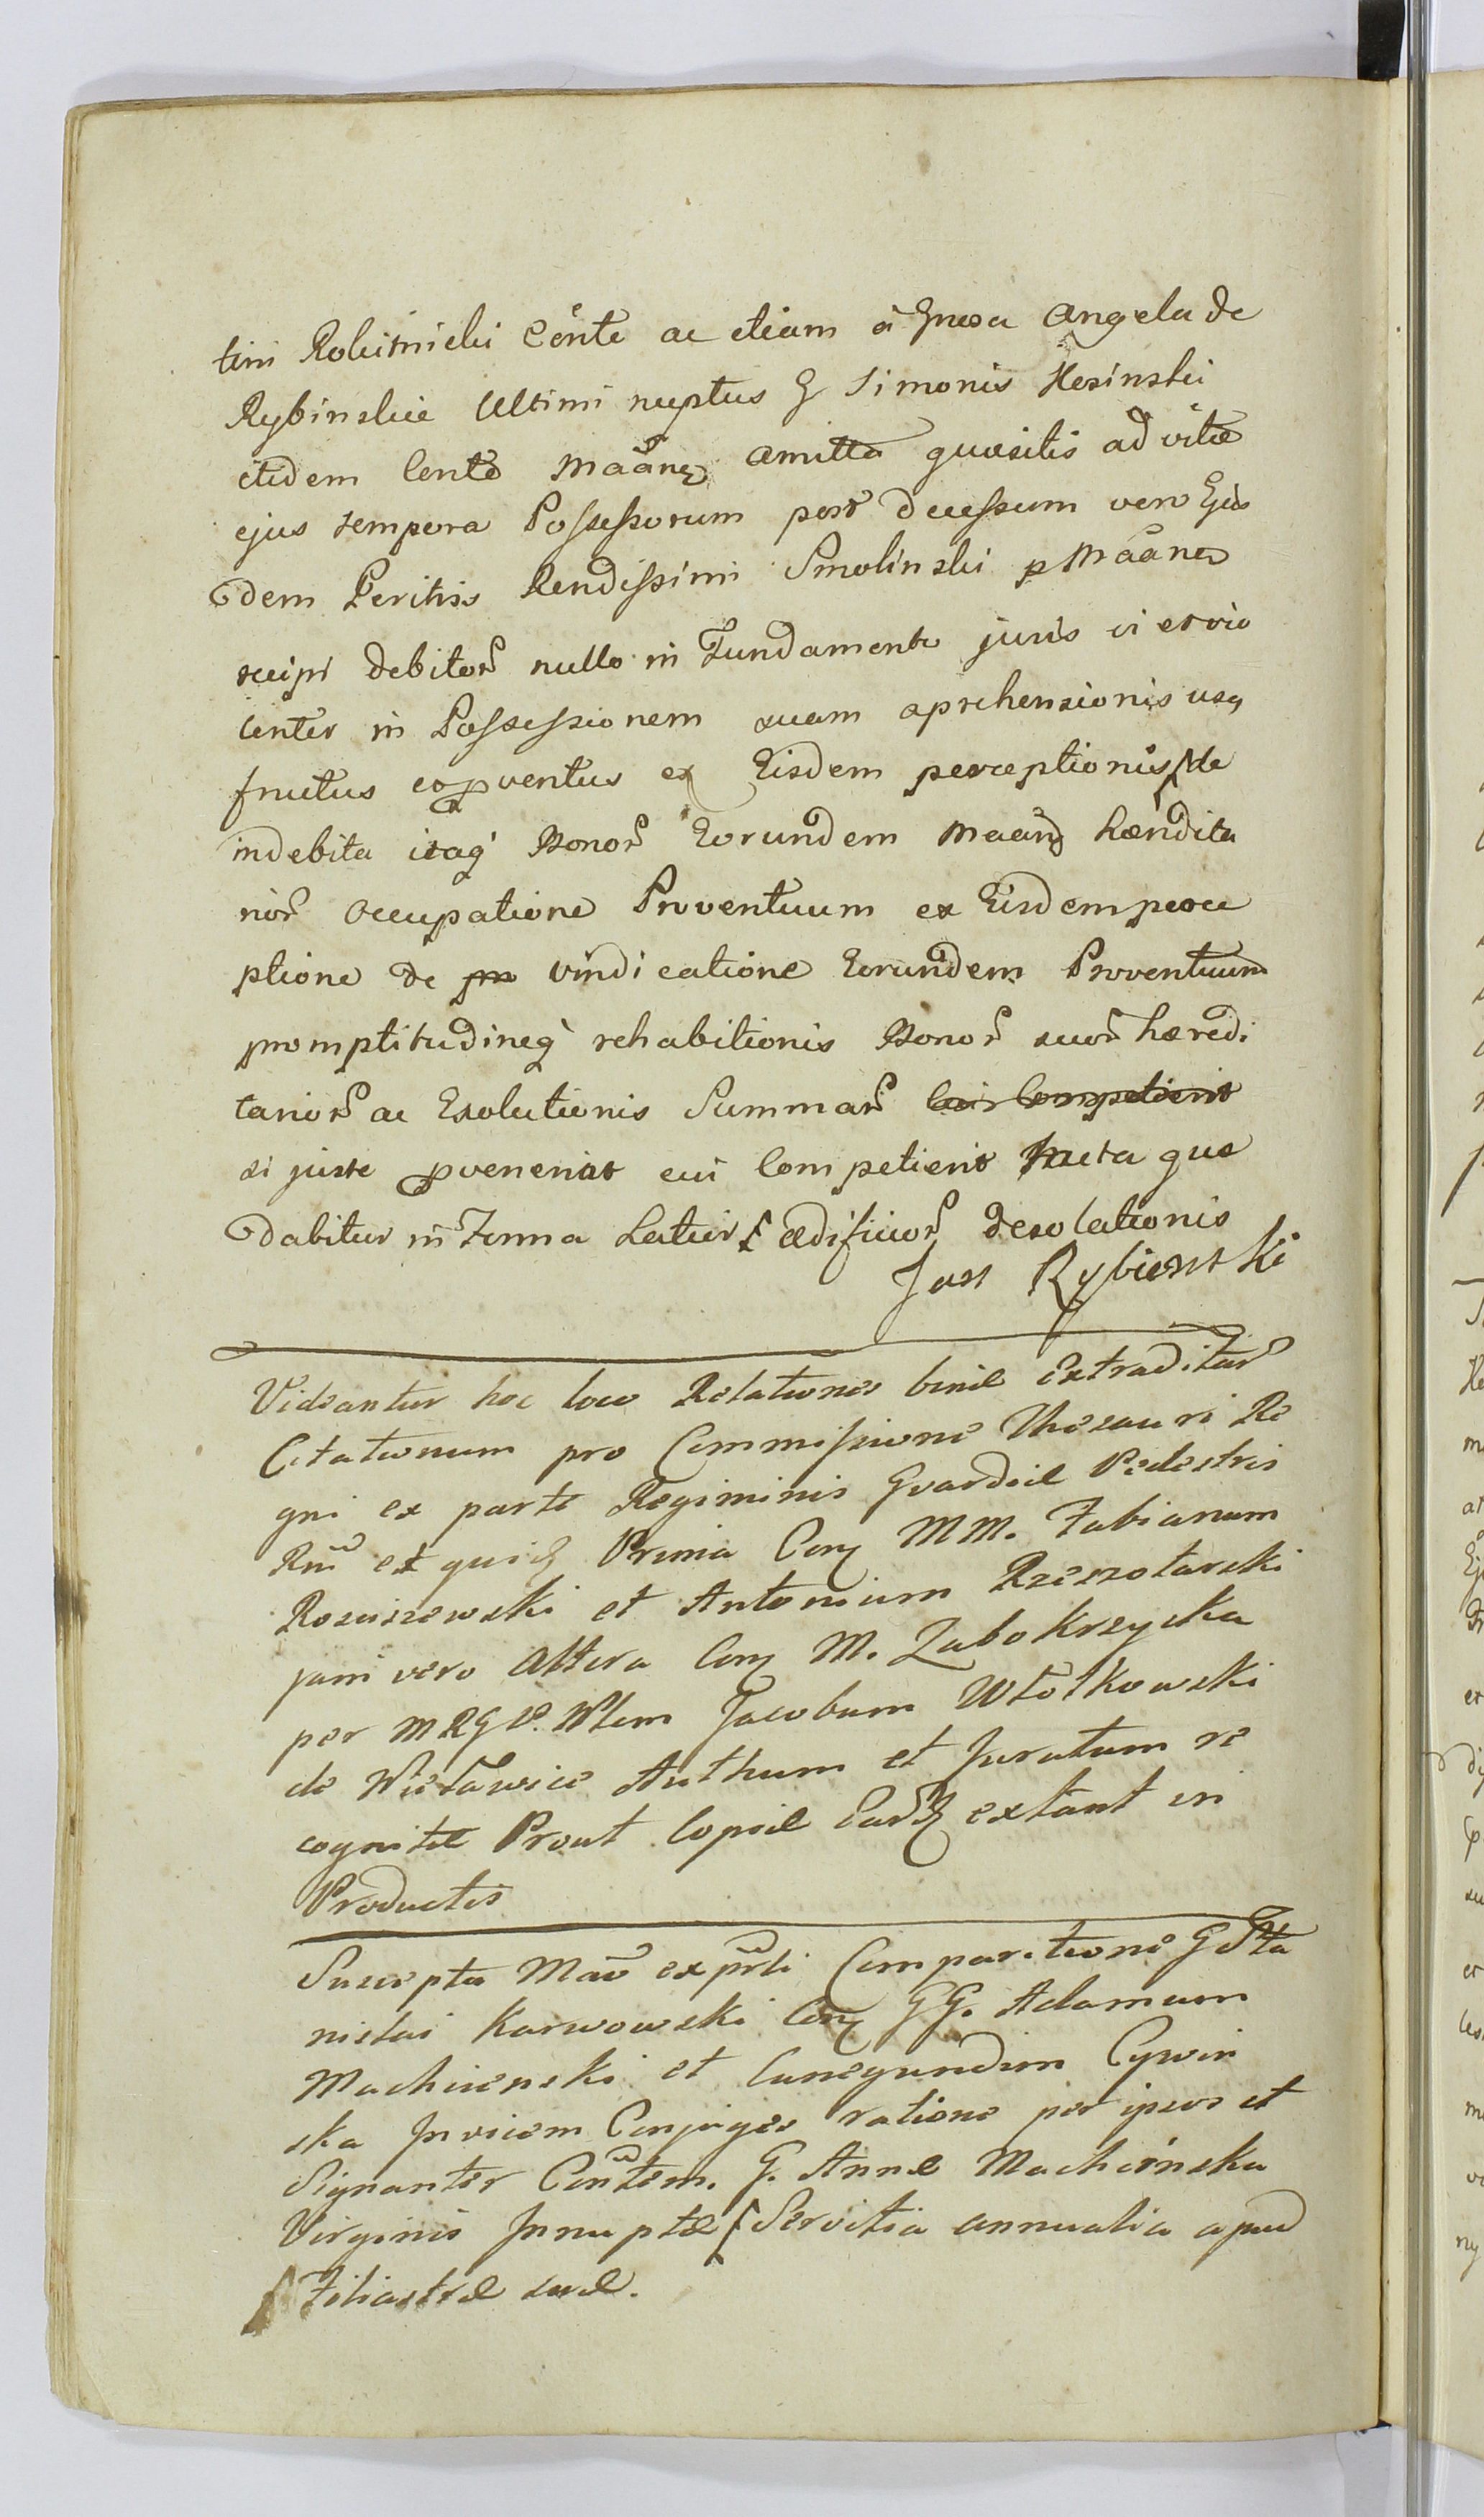 tini Rokitnicki Conte ac etiam à Gnosa Angela de
Rybinskie Ultimi nuptus G Simonis Kesinski
itidem Conte Maãnez Amitta quæsitis ad vitæ
ejus tempora Possessorum post decessum vero Ejus
dem Peritiss Rendissimi Smolinski p Maãnez
recipi debitor nullo in Fundamento juris vi et vio
lenter in Possessionem suam aprehensionis usq
fructus et pventus ex Eisdem perceptionis de
indebita itaq Bonor Eorundem Maãnz hæredita
rior Occupatione Proventuum ex Eisdem perce
ptione de vindicatione Eorundem Proventuum
promptitudineq rehabitionis Bonor suor hæredi
tarior ac Exolutionis Summar Cui Competierit
si juste pvenerint cui Competierit que
dabitur in Termo Latius ædificior desolationis
Jan Rybienski
Videantur hoc loco Relationes binæ Extraditar
Citationum pro Commissione Thesauri Re
gni ex parte Regiminis Gvardiæ Pedestris
Rni ex quib Prima Con MM. Fabianum
Rosciszewski et Antonium Rzeszotarski
jam vero Altera Con M. Zabokrzycka
per MRG V. Wlem Jacobum Wtotkowski
de Wietawice Anthum et Juratum re
cognitæ Prout Copiæ Ear extant in
Productis
Suscepta Mao ex pti Comparitione G Sta
nislai Karwowski Con GG. Adamum
Machienski et Cunegundim Cywin
ska Invicem Conjuges ratione per ipsos et
Signanter Contem. G. Annæ Machińska
Virginis Innuptæ Servitia annualia apud
Filiastræ suæ.